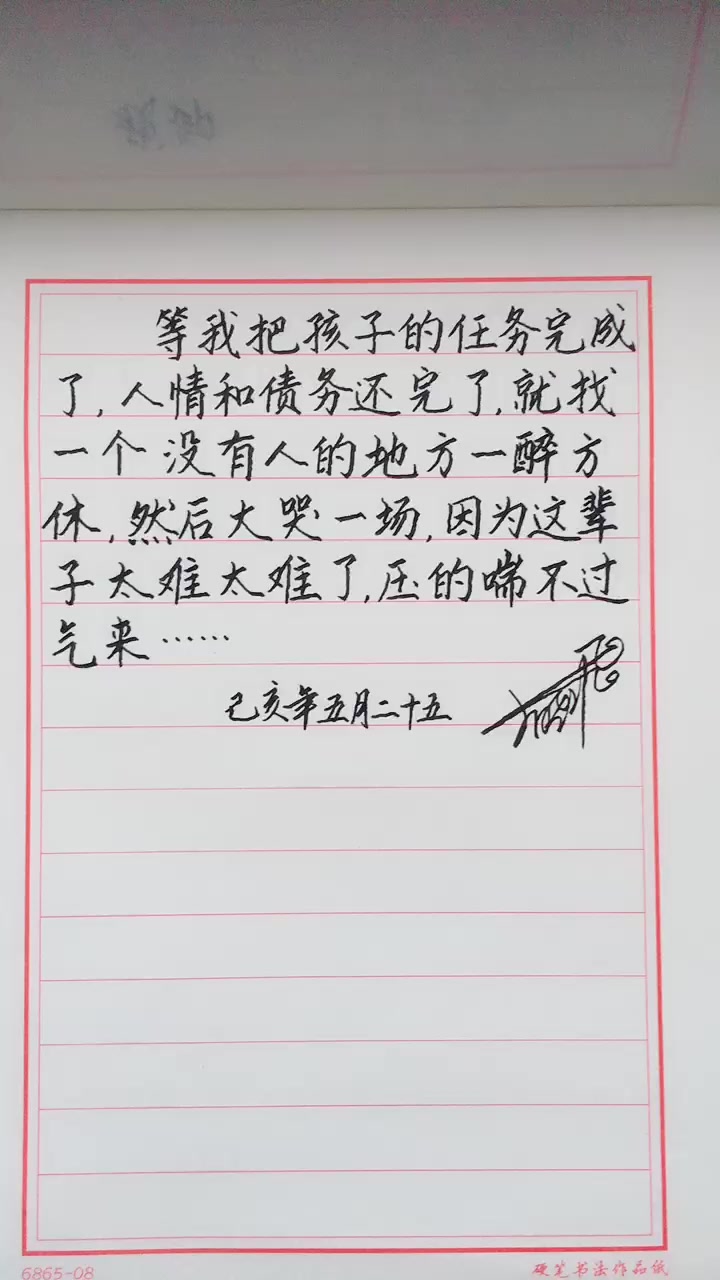 等我把孩子的任务完成
了,人情和债务还完了,就找
一个没有人的地方一醉方
休,然后大哭一场,因为这辈
子太难太难了,压的喘不过
气来……
己亥年五月二十五
6865-08
硬笔书法作品纸